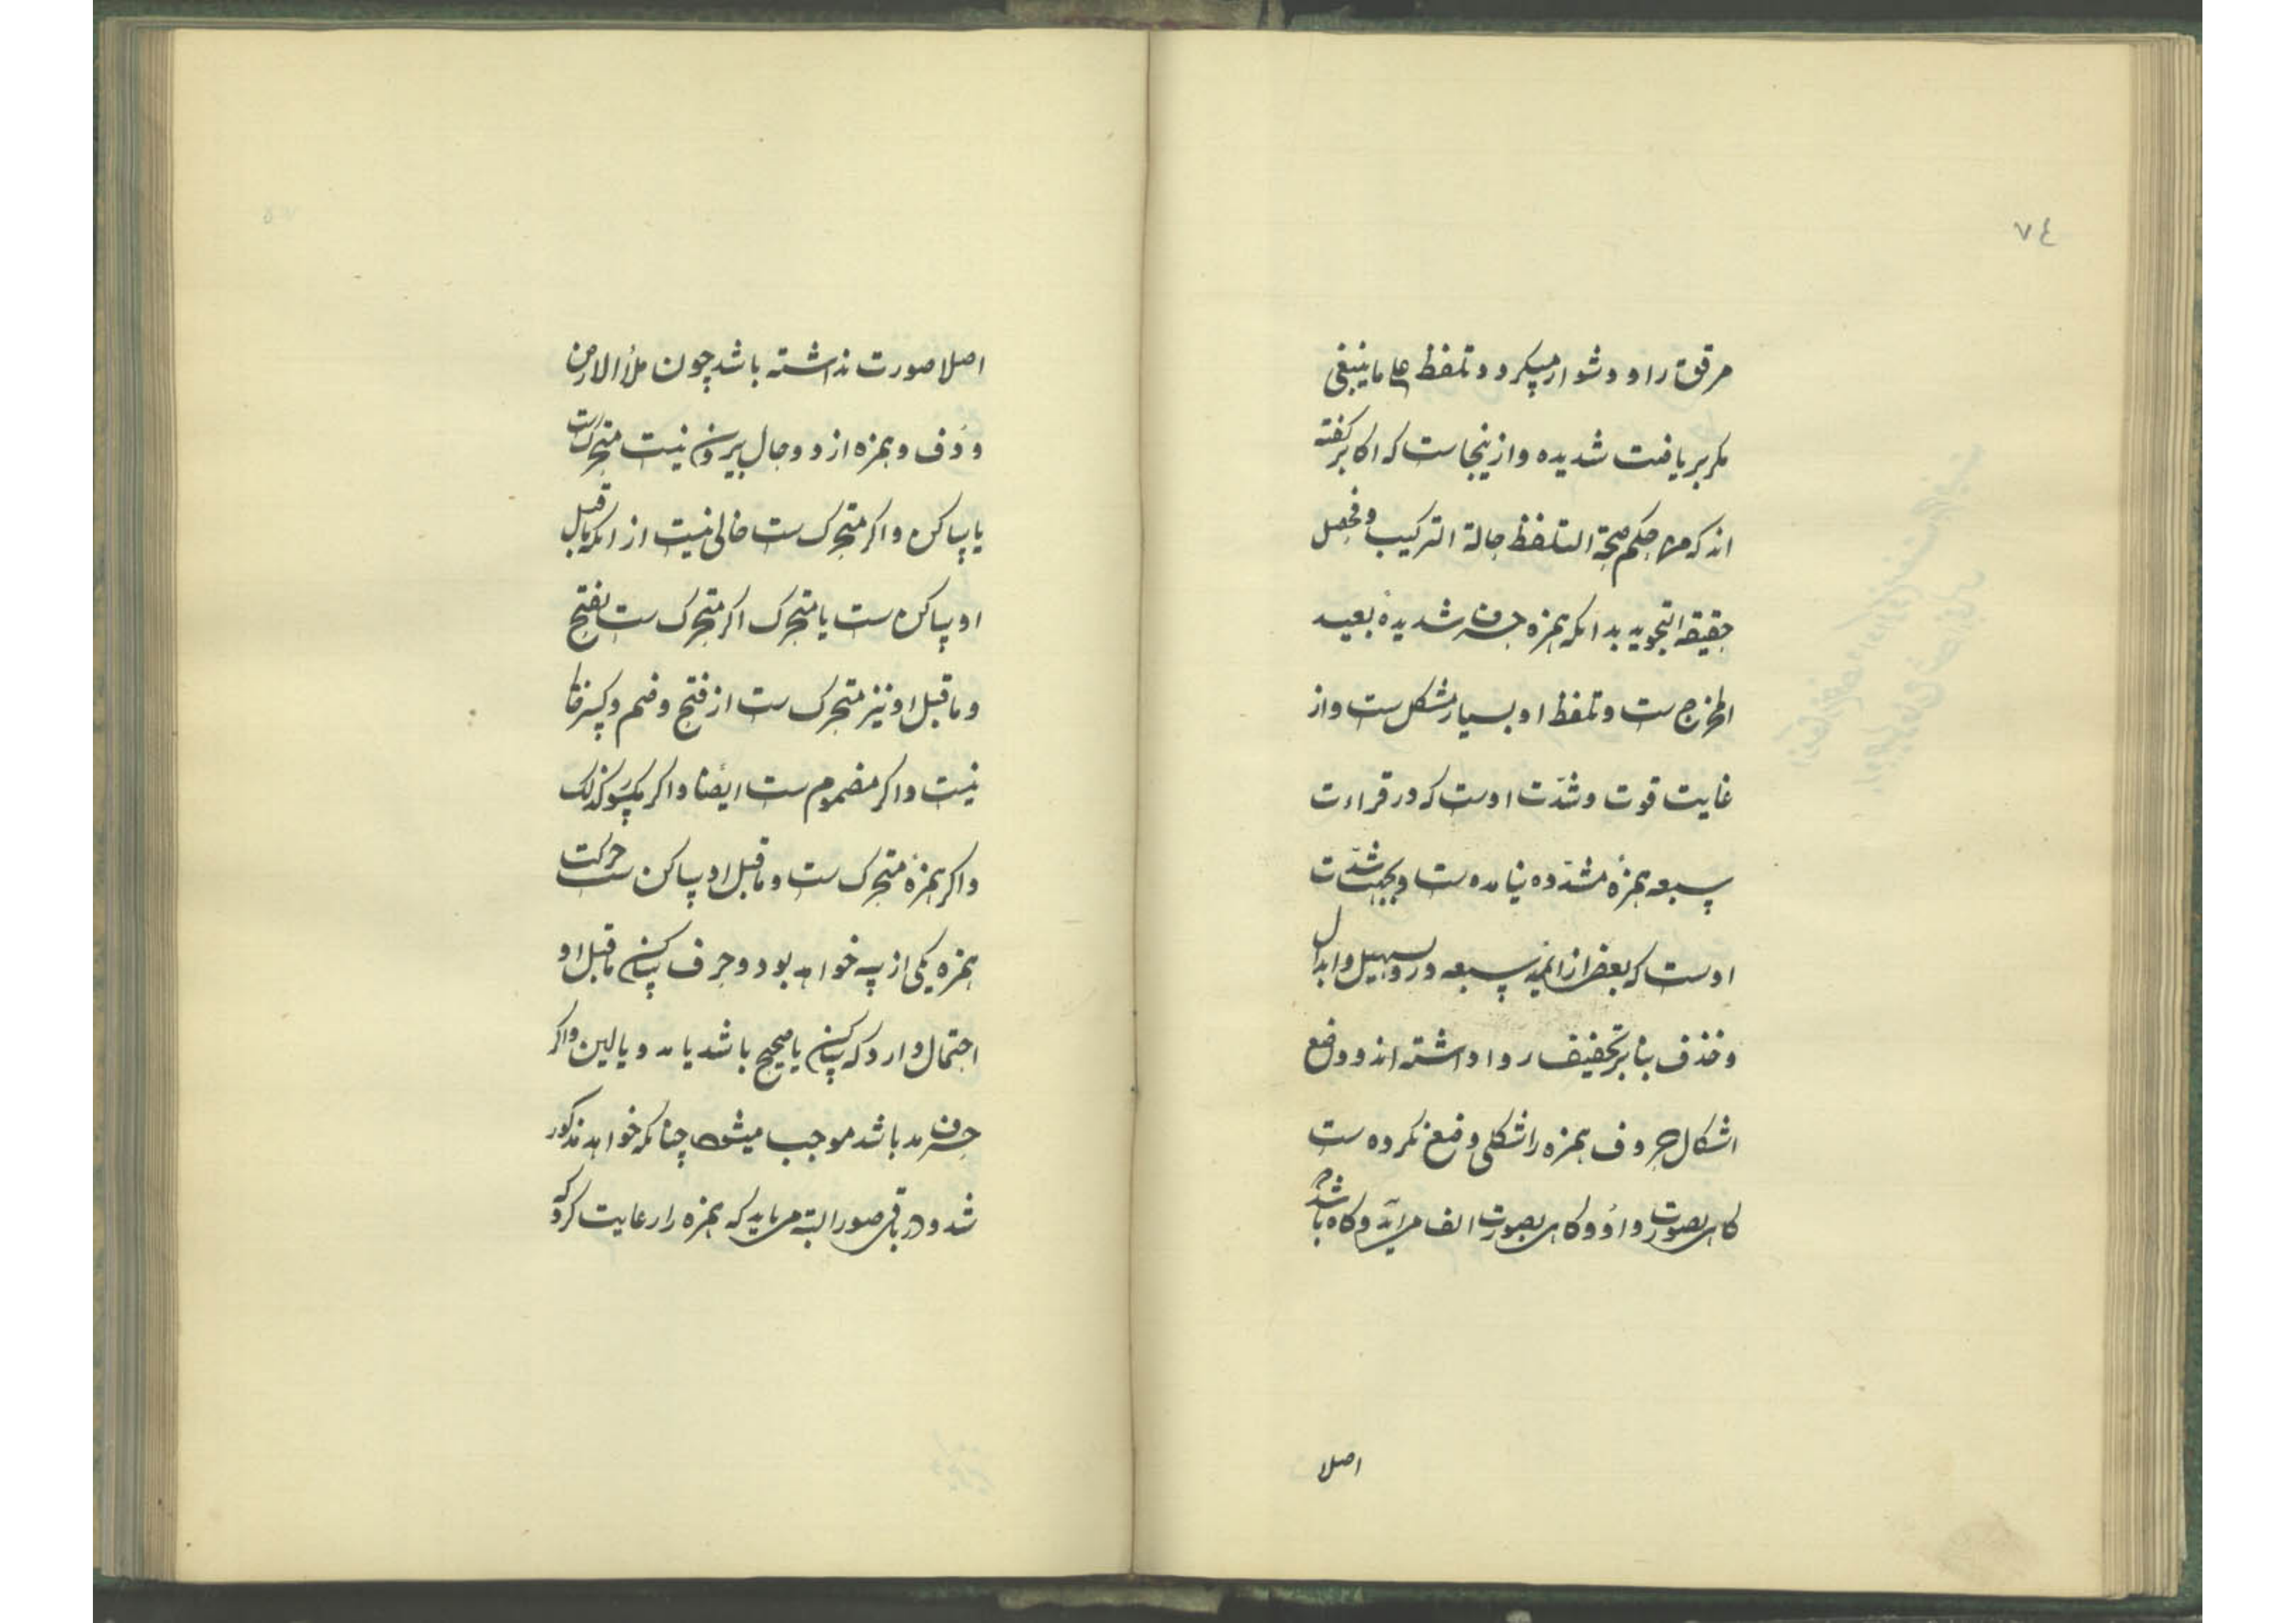 ٧٤
مرقق را و دشوار میکردد تلفظ علی ما ینبغی
مکر بریاضت شدیده و از ینجاست که اکابر کفته
اند که من احکم صحة التلفظ حالة الترکیب فحصل
حقیقة التجوید بدانکه همزه حرف شدیدهٔ بعید
المخرج ست و تلفظ او بسیار مشکل ست و از
غایت قوت و شدّت اوست که در قراءت
سبعه همزهٔ مشدّده نیامده ست و بجهت شدّت
اوست که بعضی از ائمه سبعه درو تسهیل و ابدال
و حذف بنابر تخفیف روا داشته اند و وضع
اشکال حروف همزه را شکلی وضع نکرده ست
کاهی بصورت واو و کاهی بصورت الف می آید و کاه باشد که
اصلا
اصلا صورت نداشته باشد چون ملأ الارض
و دف و همزه از دو حال بیرون نیست متحرک ست
یا ساکن و اکر متحرک ست خالی نیست از انکه ماقبل
او ساکن ست یا متحرک اکر متحرک ست بفتح
و ماقبل او نیز متحرک ست از فتح و ضم و کسر خالی
نیست و اکر مضموم ست ایضا و اکر مکسور کذلک
و اکر همزهٔ متحرک ست و ماقبل او ساکن ست حرکت
همزه یکی از سه خواهد بود و حرف ساکن ماقبل او
احتمال دارد که ساکن یا صحیح باشد یا مد و یا لین و اکر
حرف مد باشد موجب میشود چنانکه خواهد مذکور
شد و در باقی صور البته می باید که همزه را رعایت کرد که